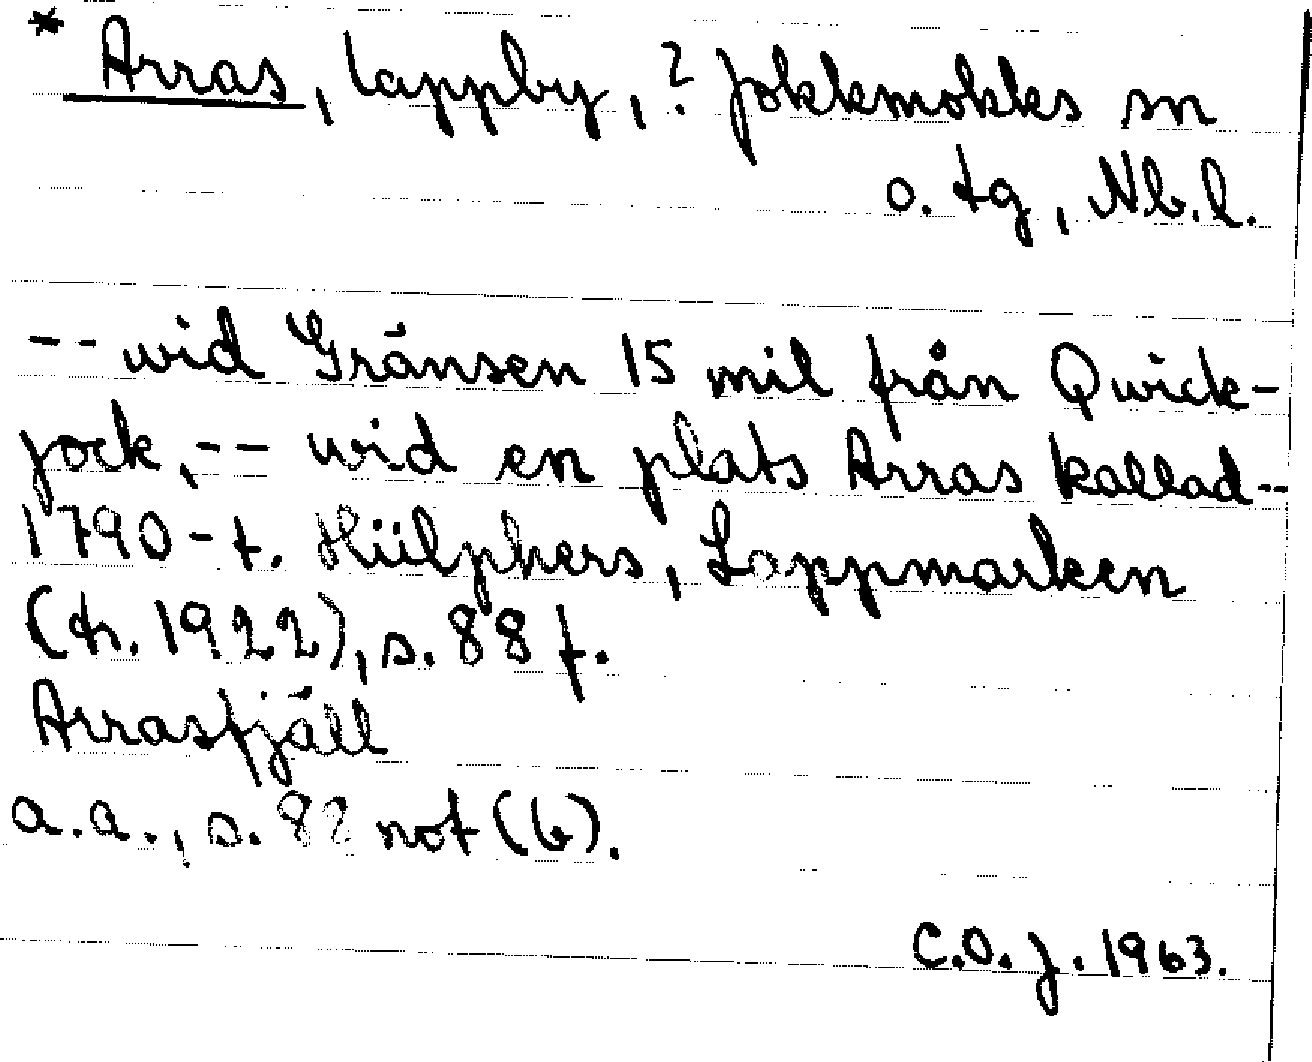 * Arras, lappby, ? Jokkmokks sn
o. tg, Nb.l.
-- wid Gränsen 15 mil från Qwick-
jock, -- wid en plats Arras kallad --
1790-t. Hülphers, Lappmarken
(tr. 1922), s. 88 f.
Arrasfjäll
a.a., s. 82 not (b).
C.O.J. 1963.